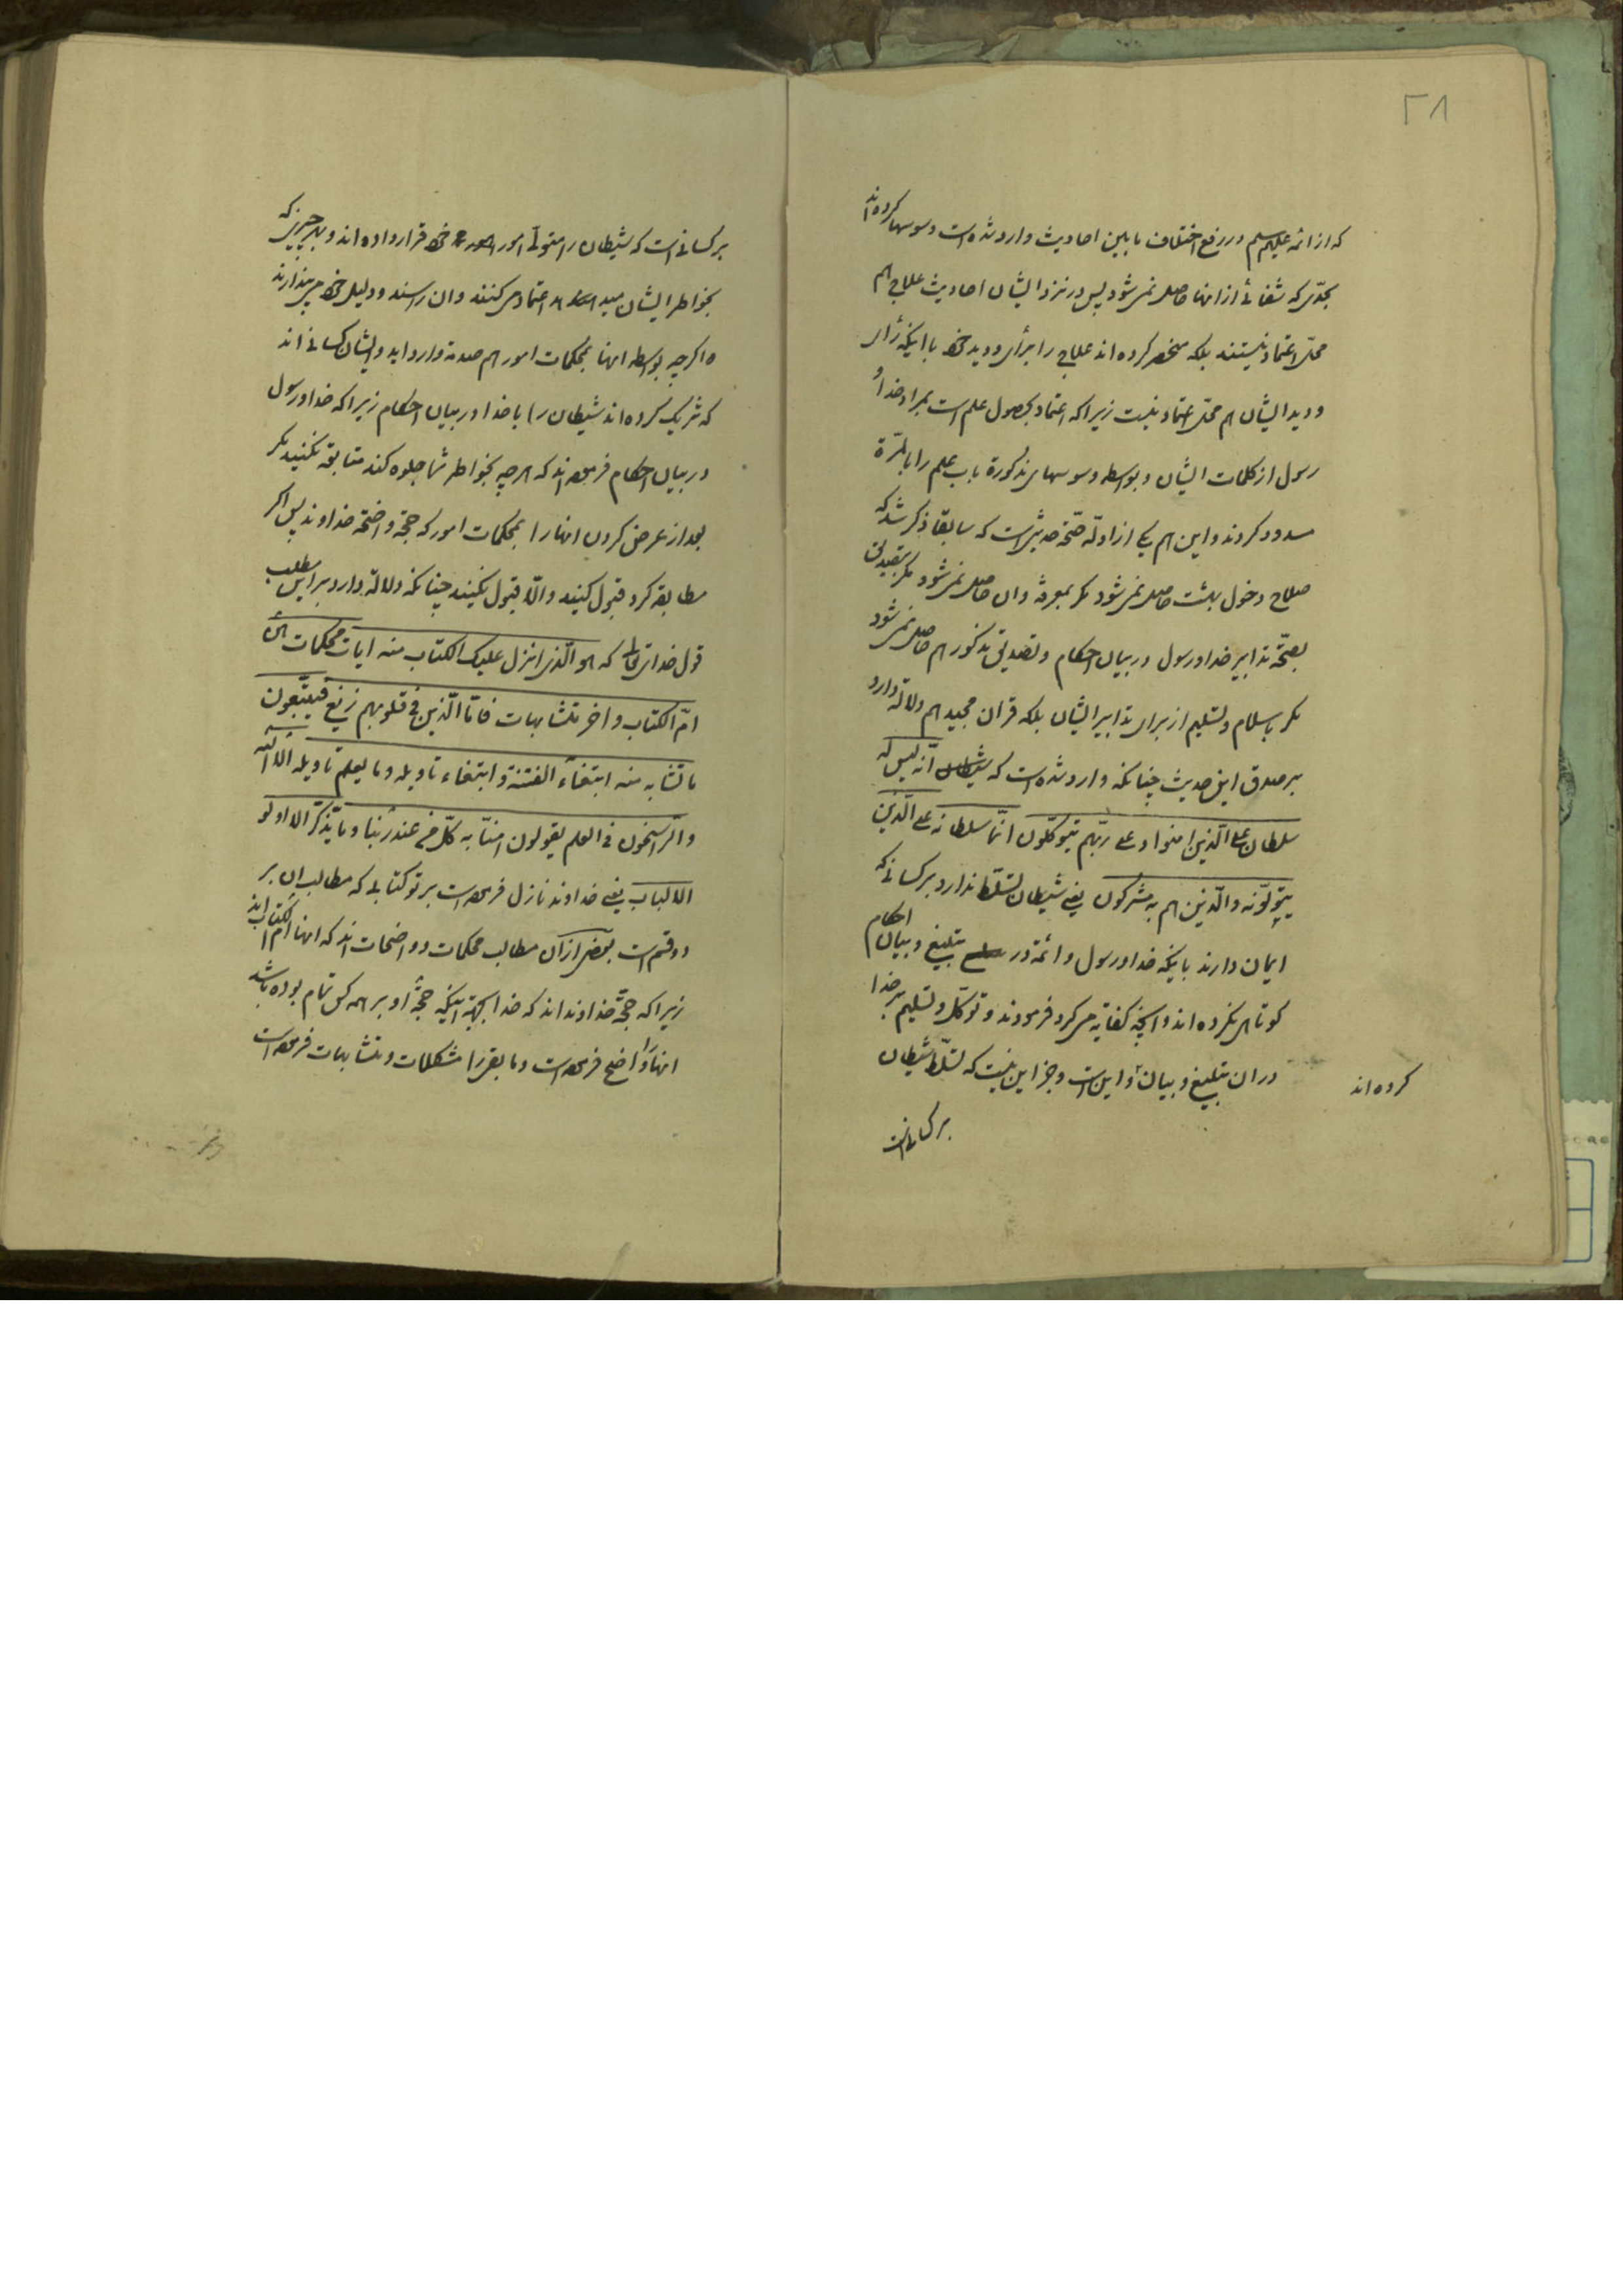 ۲۸
که از ائمه علیهم سلم در رفع اختلاف مابین احادیث وارد شده است وسوسها کرده اند
بحدّی که شفائی از انها حاصل نمی شود پس در نزد ایشان احادیث علاج هم
محلّ اعتماد نیستند بلکه منحصر کرده اند علاج را برأی ودید خود با اینکه رأی
ودید ایشان هم محل اعتماد نیست زیرا که اعتماد بحصول علم است بمراد خدا و
رسول از کلمات ایشان و بواسطه وسوسهای مذکورة باب علم را بالمرّة
مسدود کردند و این هم یکی از ادلّه صحّة حدیثی است که سابقا ذکر شد که
صلاح دخول بهشت حاصل نمی شود مکر بمعرفة وان حاصل نمی شود مکر بتصدیق
بصحّة تدابیر خدا ورسول در بیان احکام وتصدیق مذکور هم حاصل نمی شود
مکر باسلام وتسلیم از برای تدابیر ایشان بلکه قران مجید هم دلالة دارد
بر صدق این حدیث چنانکه وارد شده است که شیطان انّه لیس له
سلطان علی الّذین امنوا وعلی ربّهم یتوکّلون انّما سلطانه علی الّذین
یتولّونه والّذین هم به مشرکون یعنی شیطان تسلّط ندارد بر کسانی که
ایمان دارند باینکه خدا ورسول وائمة در تبلیغ وبیان احکام
کوتاهی نکرده اند وانچه کفایة می کرد فرمودند و توکّل وتسلیم بر خدا
کرده اند
در ان تبلیغ وبیان و این است وجز این نیست که تسلّط شیطان
بر کسانی است
بر کسانی است که شیطان را متولّی امور خود قرار داده اند وبهر چیزی که
بخواطر ایشان میرسد اعتماد می کنند وان را سند ودلیل خود می پندارند
واکرچه بواسطه انها بمحکمات امور هم صدمة وارد اید وایشان کسانی اند
که شریک کرده اند شیطان را با خدا در بیان احکام زیرا که خدا ورسول
در بیان احکام فرموده اند که هر چه بخواطر شما جلوه کند متابعة نکنید مکر
بعد از عرض کردن انها را بمحکمات امور که حجّة واضحّة خداوند پس اکر
مطابقة کرد قبول کنید والّا قبول نکنید چنانکه دلالة دارد بر این مطلب
قول خدا تعالی که هو الّذی انزل علیک الکتاب منه ایات محکمات هنّ
امّ الکتاب واخر متشابهات فامّا الّذین فی قلوبهم زیغ فیتّبعون
ما تشابه منه ابتغاء الفتنة وابتغاء تاویله وما یعلم تاویله الّا الله
والرّاسخون فی العلم یقولون امنّا به کلّ من عند ربّنا وما یذّکّر الّا اولو
الالباب یعنی خداوند نازل فرموده است بر تو کتابی که مطالب ان بر
دو قسم است بعضی از ان مطالب محکمات وواضحات اند که انها امّ الکتاب اند
زیرا که حجّة خداوند اند که خدا بجهة اینکه حجّة او بر همه کس تمام بوده باشد
انها را واضح فرموده است وما بقی را مشکلات ومتشابهات فرموده است